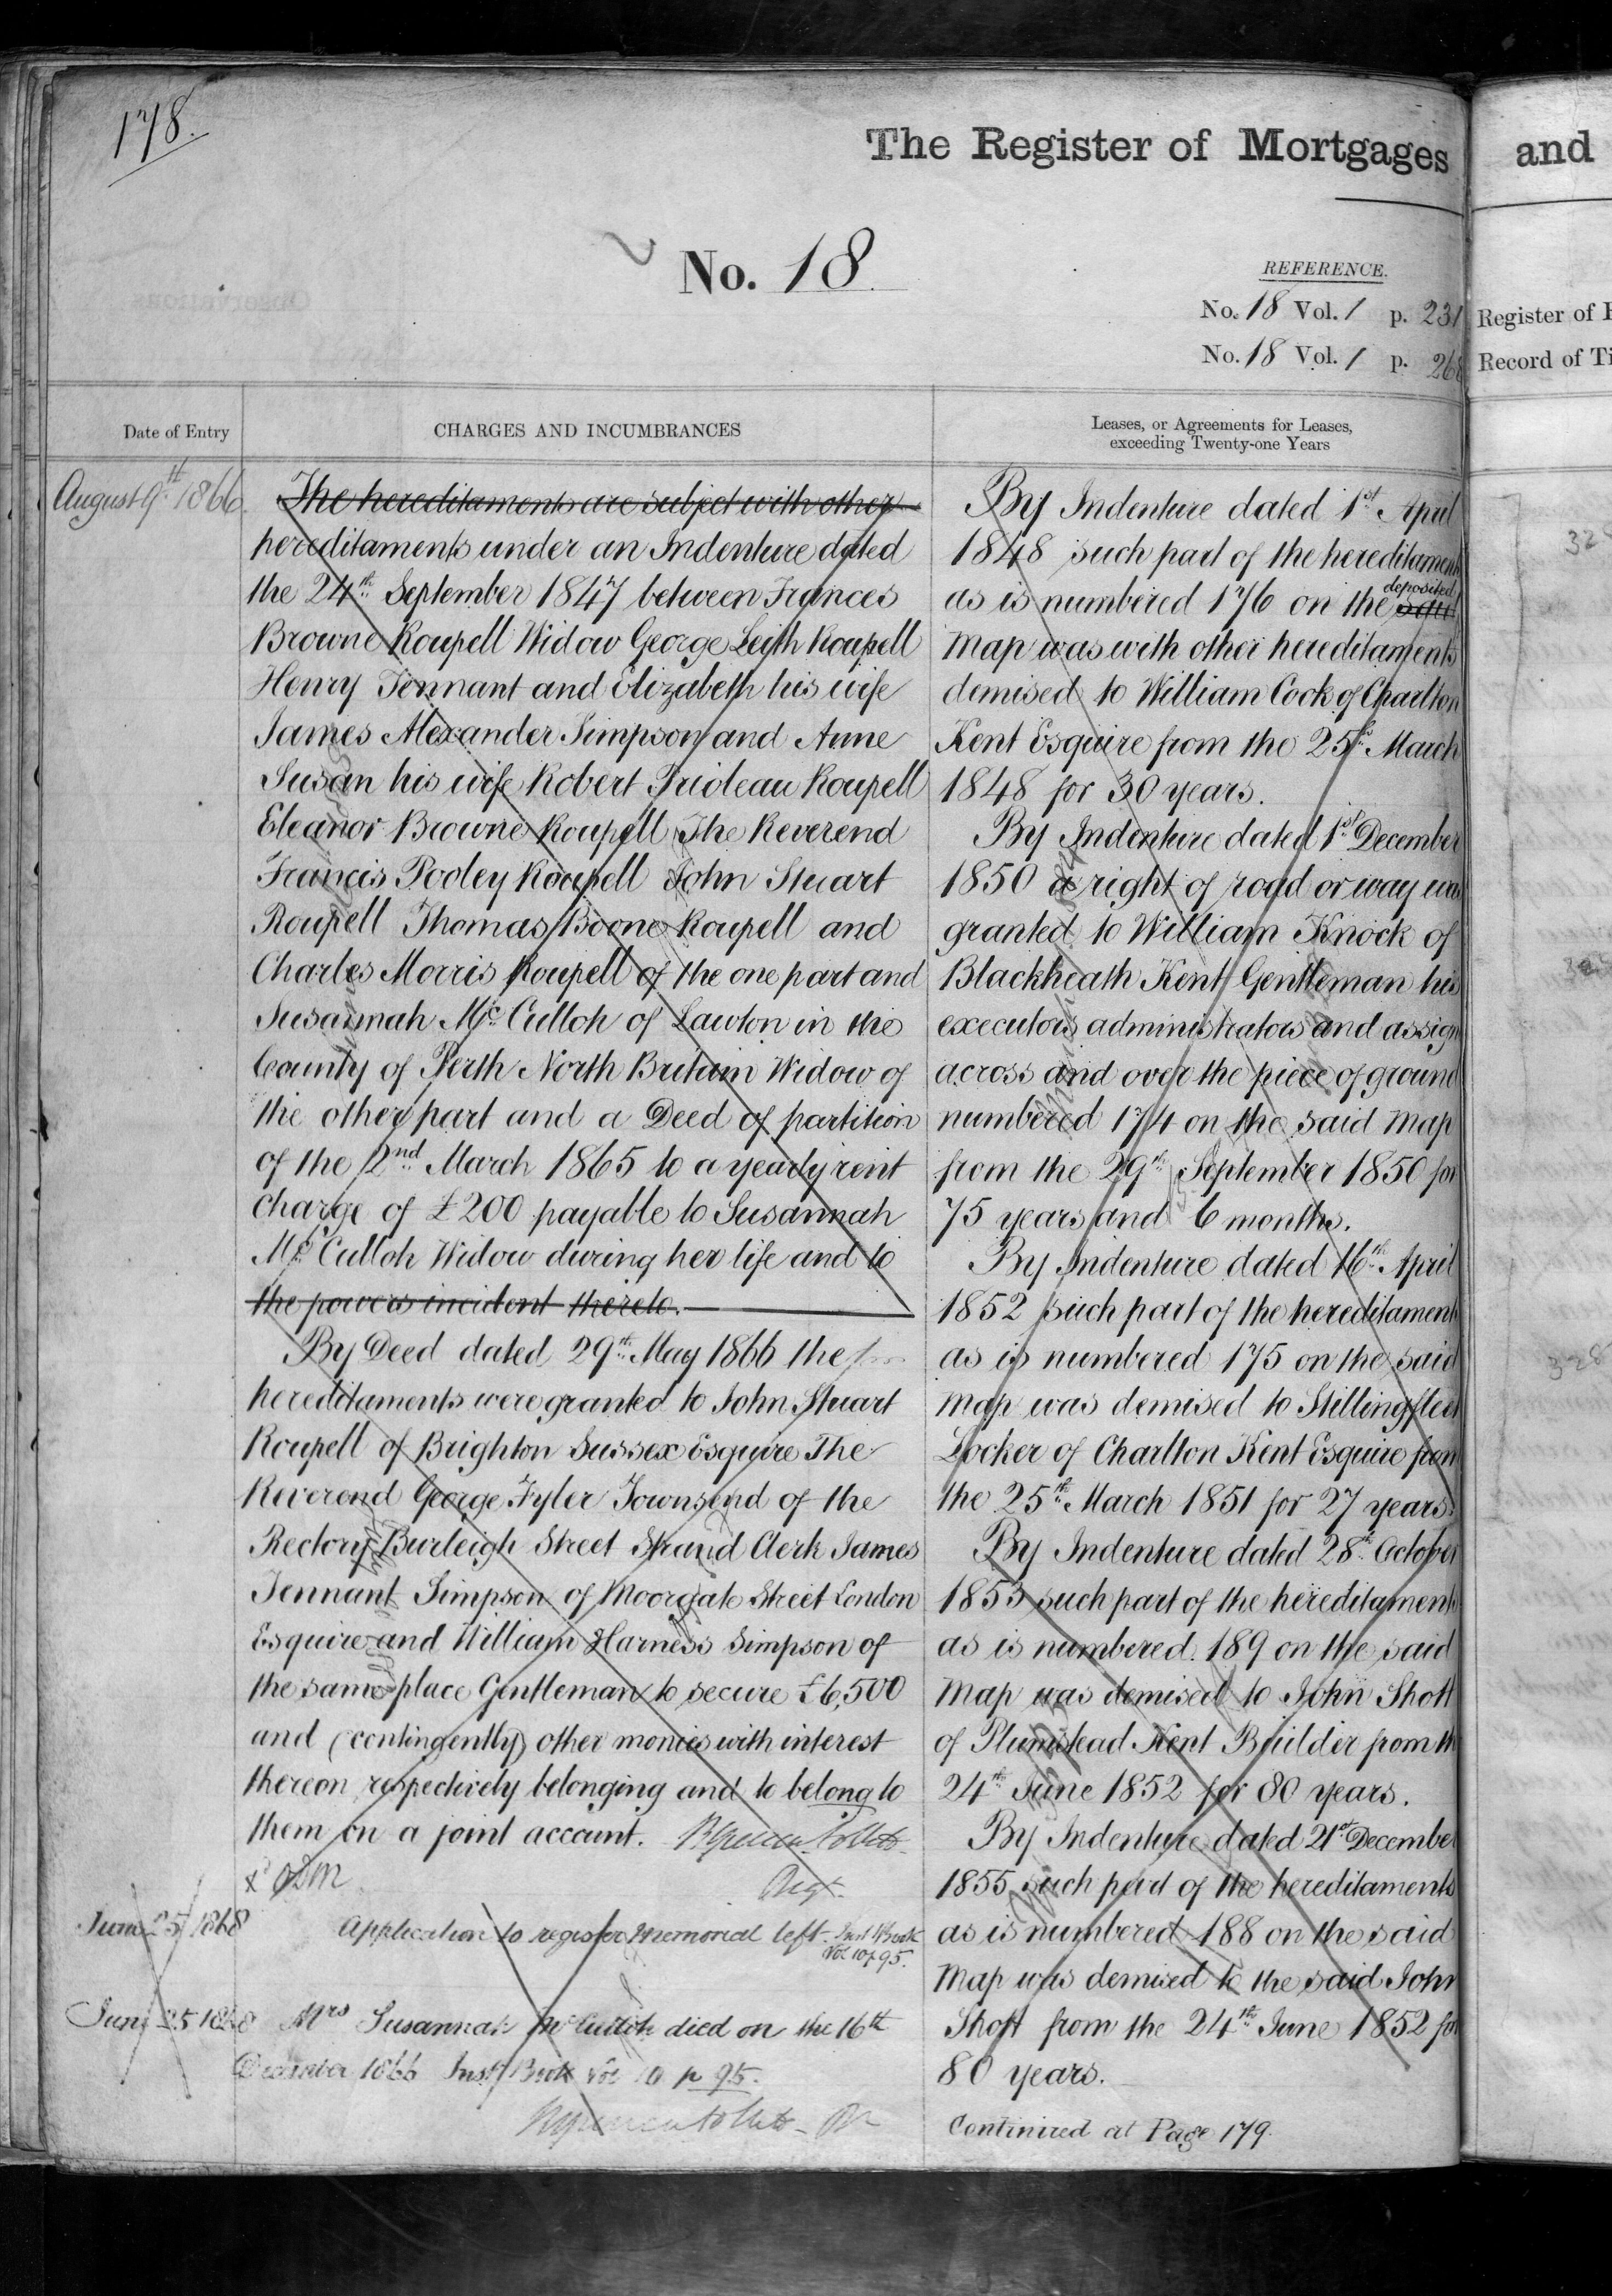 178.
The Register of Mortgages and
No. 18
REFERENCE.
No. 18 Vol. 1 p. 231 Register of
No. 18 Vol. 1 p. 268 Record of Ti
Date of Entry
CHARGES AND INCUMBRANCES
Leases, or Agreements for Leases,
exceeding Twenty-one Years
August 9th 1866.
The hereditaments are subject with other
hereditaments under an Indenture dated
the 24th September 1847 between Frances
Browne Roupell Widow George Leith Roupell
Henry Tennant and Elizabeth his wife
James Alexander Simpson and Anne
Susan his wife Robert Prioleau Roupell
Eleanor Browne Roupell The Reverend
Francis Pooley Roupell John Stuart
Roupell Thomas Boone Roupell and
Charles Morris Roupell of the one part and
Susannah McCulloh of Lawton in the
County of Perth North Britain Widow of
the other part and a Deed of partition
of the 2nd March 1865 to a yearly rent
charge of £200 payable to Susannah
McCulloh Widow during her life and to
the powers incident thereto.
By Deed dated 29th May 1866 the
hereditaments were granted to John Stuart
Roupell of Brighton Sussex Esquire The
Reverend George Fyler Townsend of the
Rectory Burleigh Street Strand Clerk James
Tennant Simpson of Moorgate Street London
Esquire and William Harness Simpson of
the same place Gentleman to secure £6,500
and (contingently) other monies with interest
thereon respectively belonging and to belong to
them on a joint account.
Regr.
June 25 1868
Application to register Memorial left Inst Book
Vol 10 p 95.
June 25 1868
Mrs Susannah McCulloh died on the 16th
December 1866 Inst Book Vol 10 p 95.
By Indenture dated 1st April
1848 such part of the hereditaments
as is numbered 176 on the deposited said
map was with other hereditaments
demised to William Cook of Charlton
Kent Esquire from the 25th March
1848 for 30 years.
By Indenture dated 1st December
1850 a right of road or way was
granted to William Knock of
Blackheath Kent Gentleman his
executors administrators and assign
across and over the piece of ground
numbered 174 on the said map
from the 29th September 1850 for
75 years and 6 months.
By Indenture dated 16th April
1852 such part of the hereditament
as is numbered 175 on the said
map was demised to Stillingfleet
Locker of Charlton Kent Esquire from
the 25th March 1851 for 27 years.
By Indenture dated 28th October
1853 such part of the hereditament
as is numbered 189 on the said
map was demised to John Shott
of Plumstead Kent Builder from th
24th June 1852 for 80 years.
By Indenture dated 21st December
1855 such part of the hereditaments
as is numbered 188 on the said
map was demised to the said John
Shott from the 24th June 1852 for
80 years.
Continued at Page 179.